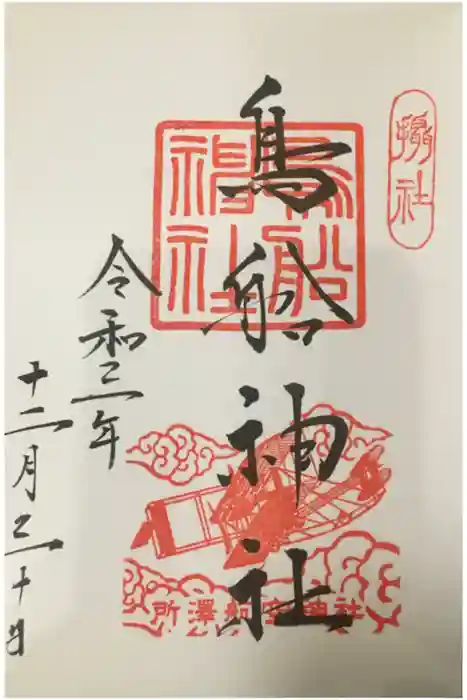 攝社
鳥船神社
鳥船
神社
所澤航空神社
令和三年
十二月三十日